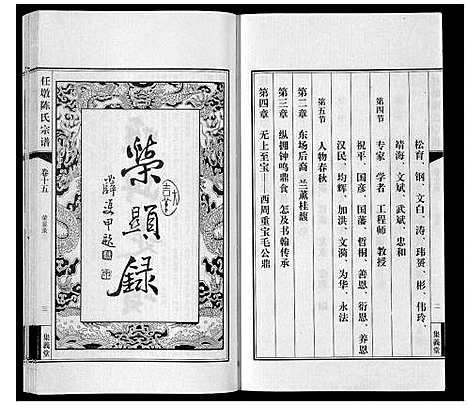 松育、钢、文白、涛、玮赟、彬、伟玲、
靖海、文斌、武斌、忠和
第四节
专家 学者 工程师 教授
祝平、国彦、国藩、哲桐、善恩、衍恩、养恩
汉民、均辉、加洪、文漪、为华、永法
第五节
人物春秋
第二章 东场后裔 兰薰桂馥
第三章 纵拥钟鸣鼎食 怎及书翰传承
第四章 无上至宝——西周重宝毛公鼎
二
任墩陈氏宗谱
卷十五
荣显录
三
集义堂
榮顯録